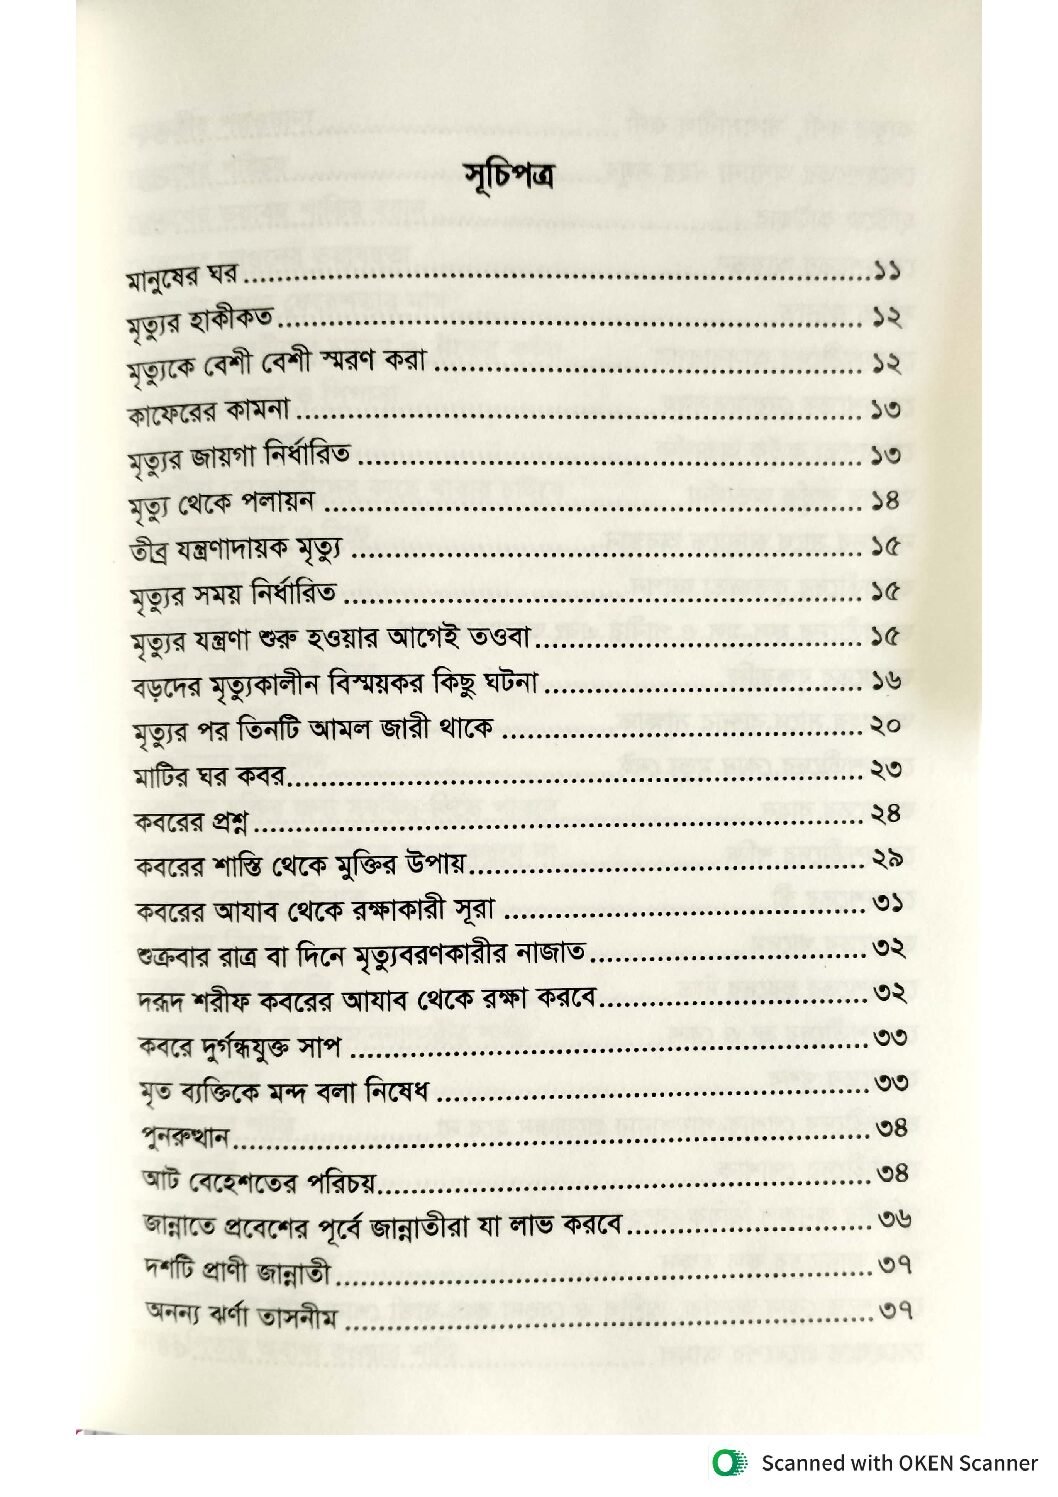 সূচিপত্র
মানুষের ঘর ........................................................................ ১১
মৃত্যুর হাকীকত ........................................................................ ১২
মৃত্যুকে বেশী বেশী স্মরণ করা ........................................................................ ১২
কাফেরের কামনা ........................................................................ ১৩
মৃত্যুর জায়গা নির্ধারিত ........................................................................ ১৩
মৃত্যু থেকে পলায়ন ........................................................................ ১৪
তীব্র যন্ত্রণাদায়ক মৃত্যু ........................................................................ ১৫
মৃত্যুর সময় নির্ধারিত ........................................................................ ১৫
মৃত্যুর যন্ত্রণা শুরু হওয়ার আগেই তওবা ........................................................................ ১৫
বড়দের মৃত্যুকালীন বিস্ময়কর কিছু ঘটনা ........................................................................ ১৬
মৃত্যুর পর তিনটি আমল জারী থাকে ........................................................................ ২০
মাটির ঘর কবর ........................................................................ ২৩
কবরের প্রশ্ন ........................................................................ ২৪
কবরের শাস্তি থেকে মুক্তির উপায় ........................................................................ ২৯
কবরের আযাব থেকে রক্ষাকারী সূরা ........................................................................ ৩১
শুক্রবার রাত্র বা দিনে মৃত্যুবরণকারীর নাজাত ........................................................................ ৩২
দরূদ শরীফ কবরের আযাব থেকে রক্ষা করবে ........................................................................ ৩২
কবরে দুর্গন্ধযুক্ত সাপ ........................................................................ ৩৩
মৃত ব্যক্তিকে মন্দ বলা নিষেধ ........................................................................ ৩৩
পুনরুত্থান ........................................................................ ৩৪
আট বেহেশতের পরিচয় ........................................................................ ৩৪
জান্নাতে প্রবেশের পূর্বে জান্নাতীরা যা লাভ করবে ........................................................................ ৩৬
দশটি প্রাণী জান্নাতী ........................................................................ ৩৭
অনন্য ঝর্ণা তাসনীম ........................................................................ ৩৭
Scanned with OKEN Scanner